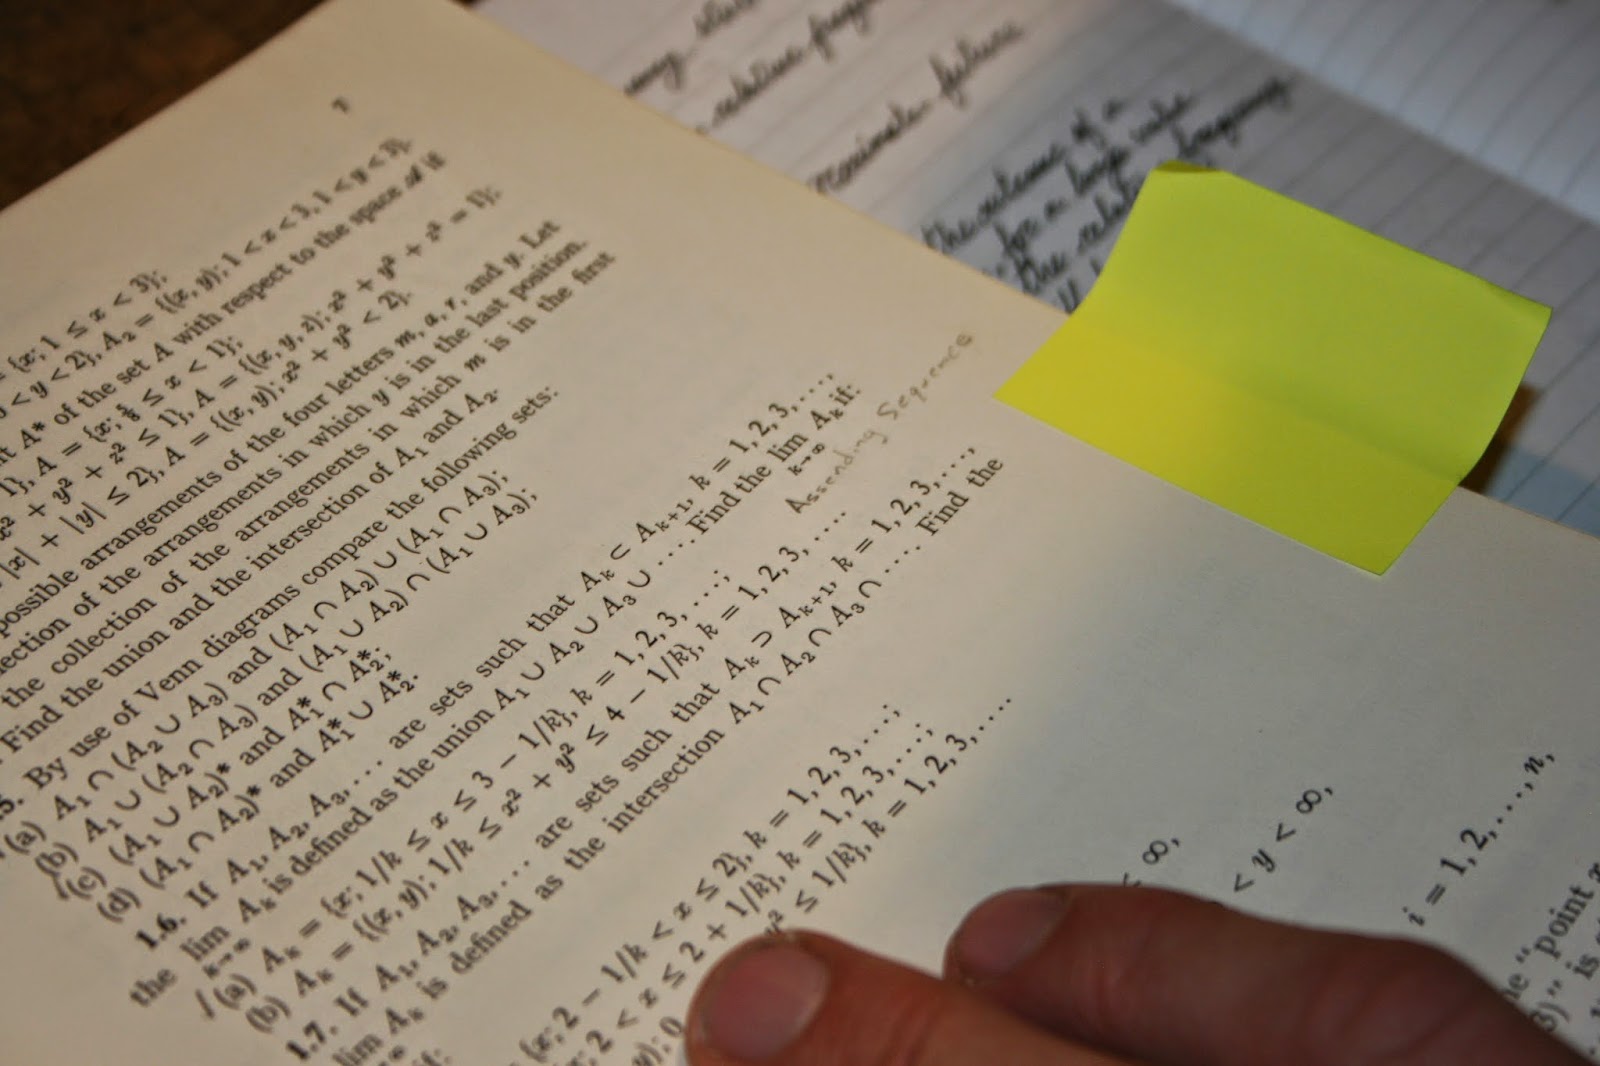 7
{x; 1 ≤ x < 3};
< y < 2}, A₂ = {(x, y); 1 < x < 3, 1 < y < 3}.
A* of the set A with respect to the space 𝒜 if
A = {x; 5/8 ≤ x < 1};
x² + y² + z² ≤ 1}, A = {(x, y, z); x² + y² + z² = 1};
|x| + |y| ≤ 2}, A = {(x, y); x² + y² < 2}.
possible arrangements of the four letters m, a, r, and y. Let
collection of the arrangements in which y is in the last position.
the collection of the arrangements in which m is in the first
Find the union and the intersection of A₁ and A₂.
5. By use of Venn diagrams compare the following sets:
(a) A₁ ∩ (A₂ ∪ A₃) and (A₁ ∩ A₂) ∪ (A₁ ∩ A₃);
(b) A₁ ∪ (A₂ ∩ A₃) and (A₁ ∪ A₂) ∩ (A₁ ∪ A₃);
(c) (A₁ ∪ A₂)* and A₁* ∩ A₂*;
(d) (A₁ ∩ A₂)* and A₁* ∪ A₂*.
1.6. If A₁, A₂, A₃, ... are sets such that Aₖ ⊂ Aₖ₊₁, k = 1, 2, 3, ...,
the lim k→∞ Aₖ is defined as the union A₁ ∪ A₂ ∪ A₃ ∪ .... Find the lim k→∞ Aₖ if:
Assending Sequence
(a) Aₖ = {x; 1/k ≤ x ≤ 3 − 1/k}, k = 1, 2, 3, ...;
(b) Aₖ = {(x, y); 1/k ≤ x² + y² ≤ 4 − 1/k}, k = 1, 2, 3, ....
1.7. If A₁, A₂, A₃, ... are sets such that Aₖ ⊃ Aₖ₊₁, k = 1, 2, 3, ...,
lim Aₖ is defined as the intersection A₁ ∩ A₂ ∩ A₃ ∩ .... Find the
if:
{x; 2 − 1/k < x ≤ 2}, k = 1, 2, 3, ...;
2 < x ≤ 2 + 1/k}, k = 1, 2, 3, ...;
y² ≤ 1/k}, k = 1, 2, 3, ....
< ∞,
< y < ∞,
i = 1, 2, ..., n,
"point
" is
relative
failure
the
of a
for a large
the